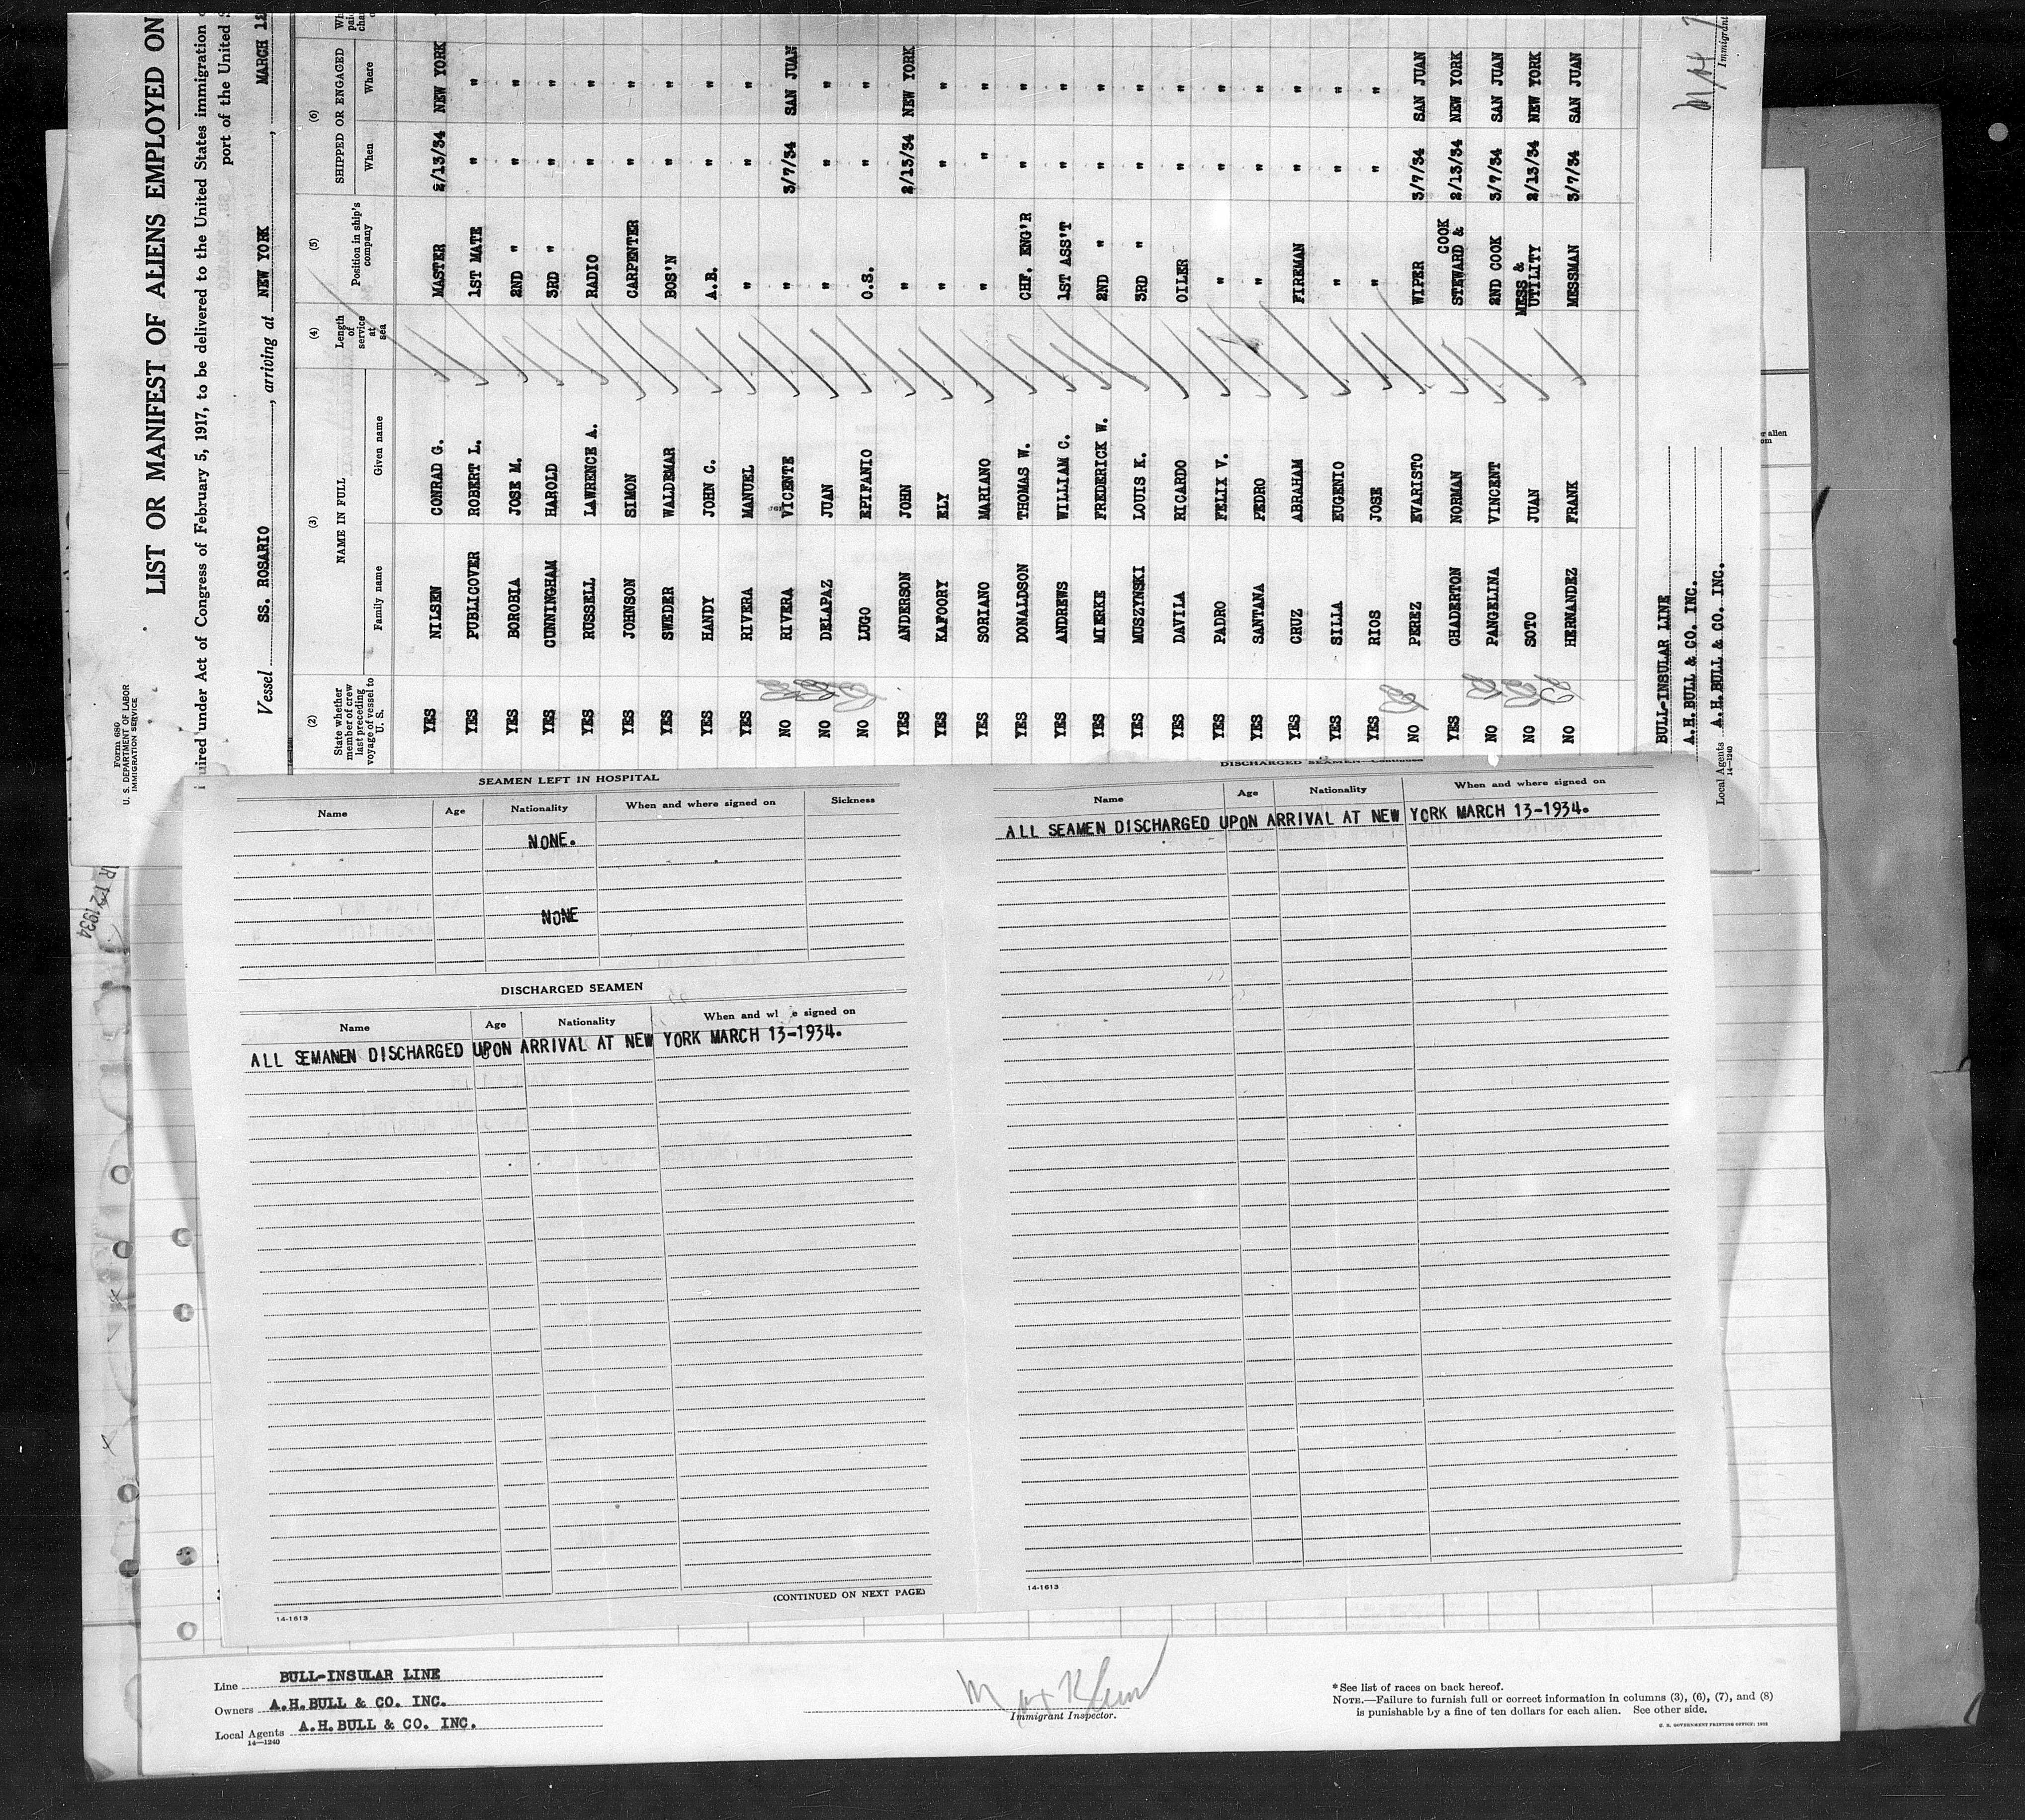 Form 689
U. S. DEPARTMENT OF LABOR
IMMIGRATION SERVICE
LIST OR MANIFEST OF ALIENS EMPLOYED ON
uired under Act of Congress of February 5, 1917, to be delivered to the United States immigration
port of the United S
Vessel SS. ROSARIO, arriving at NEW YORK, MARCH 12
(2) (3) (4) (5) (6)
State whether member of crew last preceding voyage of vessel to U. S.
NAME IN FULL
Family name Given name
Length of service at sea
Position in ship's company
SHIPPED OR ENGAGED
When Where
YES NILSEN CONRAD G. MASTER 2/13/34 NEW YORK
YES PUBLICOVER ROBERT L. 1ST MATE " "
YES BOROBIA JOSE M. 2ND " " "
YES CUNNINGHAM HAROLD 3RD " " "
YES ROSSELL LAWRENCE A. RADIO " "
YES JOHNSON SIMON CARPENTER " "
YES SWEDER WALDEMAR BOS'N " "
YES HANDY JOHN C. A.B. " "
YES RIVERA MANUEL " " "
NO RIVERA VICENTE " 3/7/34 SAN JUAN
NO DELAPAZ JUAN " " "
NO LUGO EPIFANIO O.S. " "
YES ANDERSON JOHN " 2/13/34 NEW YORK
YES KAFOORY ELY " " "
YES SORIANO MARIANO " " "
YES DONALDSON THOMAS W. CHF. ENG'R " "
YES ANDREWS WILLIAM C. 1ST ASS'T " "
YES MIERKE FREDERICK W. 2ND " " "
YES MUSZYNSKI LOUIS K. 3RD " " "
YES DAVILA RICARDO OILER " "
YES PADRO FELIX V. " " "
YES SANTANA PEDRO " " "
YES CRUZ ABRAHAM FIREMAN " "
YES SILLA EUGENIO " " "
YES RIOS JOSE " " "
NO PEREZ EVARISTO WIPER 3/7/34 SAN JUAN
YES CHADERTON NORMAN STEWARD & COOK 2/13/34 NEW YORK
NO PANGELINA VINCENT 2ND COOK 3/7/34 SAN JUAN
NO SOTO JUAN MESS & UTILITY 2/13/34 NEW YORK
NO HERNANDEZ FRANK MESSMAN 3/7/34 SAN JUAN
BULL-INSULAR LINE
A.H. BULL & CO. INC.
Local Agents A.H. BULL & CO. INC.
14—1240
Immigrant
R 12 1934
SEAMEN LEFT IN HOSPITAL
Name Age Nationality When and where signed on Sickness
NONE.
NONE
DISCHARGED SEAMEN
Name Age Nationality When and wh e signed on
ALL SEMANEN DISCHARGED UPON ARRIVAL AT NEW YORK MARCH 13-1934.
(CONTINUED ON NEXT PAGE)
14-1613
DISCHARGED SEAMEN—Continued
Name Age Nationality When and where signed on
ALL SEAMEN DISCHARGED UPON ARRIVAL AT NEW YORK MARCH 13-1934.
14-1613
Line BULL-INSULAR LINE
Owners A.H.BULL & CO. INC.
Local Agents A.H.BULL & CO. INC.
14—1240
Immigrant Inspector.
*See list of races on back hereof.
NOTE.—Failure to furnish full or correct information in columns (3), (6), (7), and (8)
is punishable by a fine of ten dollars for each alien. See other side.
U. S. GOVERNMENT PRINTING OFFICE: 1932